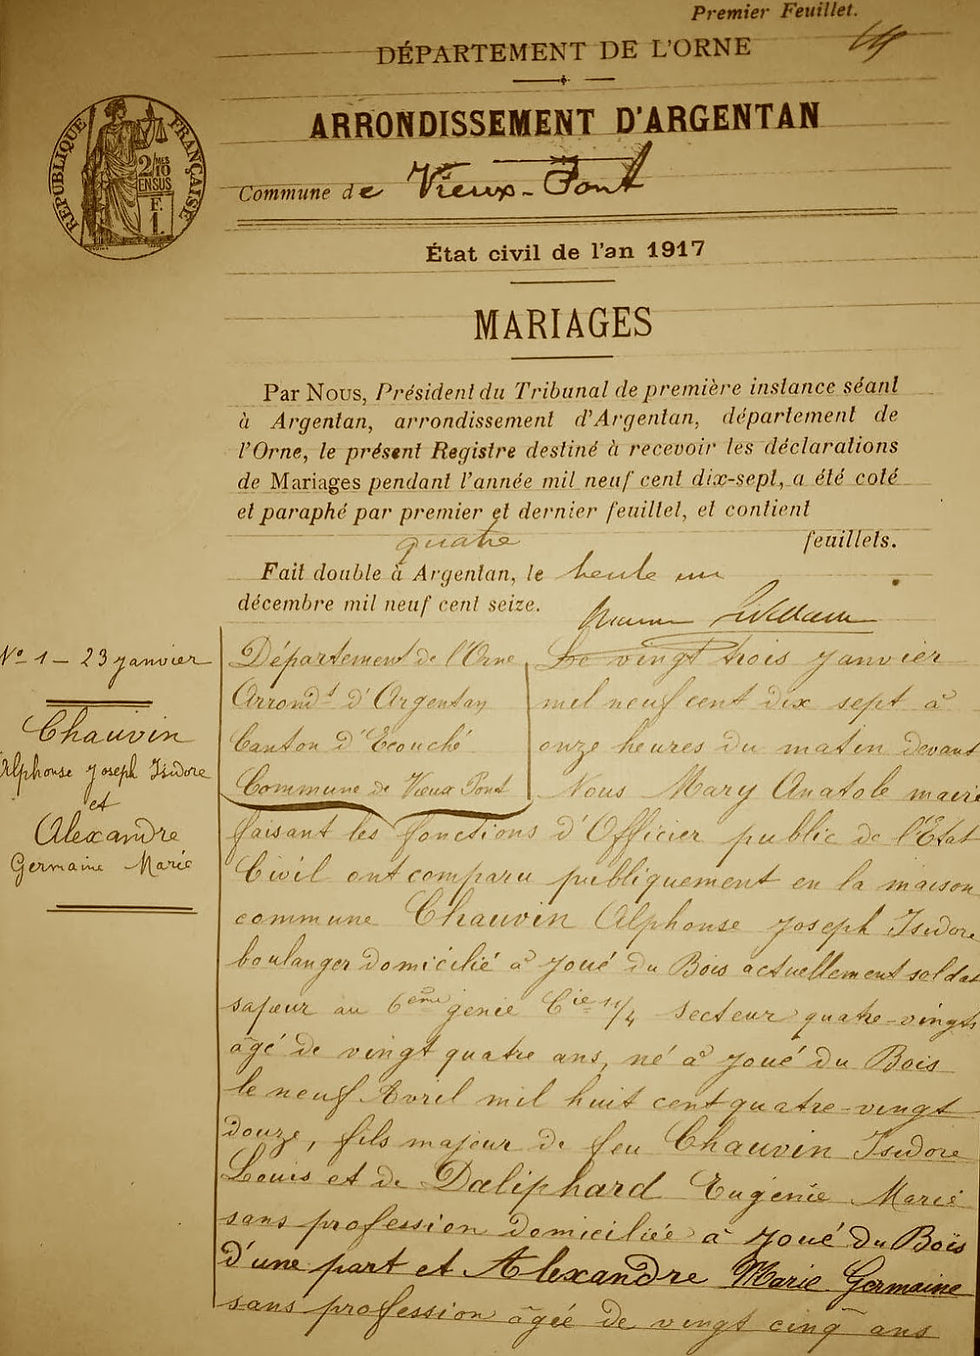 Premier Feuillet.
DÉPARTEMENT DE L'ORNE
RÉPUBLIQUE FRANÇAISE
2/10
MES
EN SUS
F.
1.
ARRONDISSEMENT D'ARGENTAN
Commune de Vieux-Pont
État civil de l'an 1917
MARIAGES
Par Nous, Président du Tribunal de première instance séant
à Argentan, arrondissement d'Argentan, département de
l'Orne, le présent Registre destiné à recevoir les déclarations
de Mariages pendant l'année mil neuf cent dix-sept, a été coté
et paraphé par premier et dernier feuillet, et contient
quatre feuillets.
Fait double à Argentan, le trente un
décembre mil neuf cent seize.
No 1 - 23 janvier
Chauvin
Alphonse Joseph Isidore
et
Alexandre
Germaine Marie
Département de l'Orne
Arrondt d'Argentan
Canton d'Ecouché
Commune de Vieux Pont
Le vingt trois janvier
mil neuf cent dix sept à
onze heures du matin devant
Nous Mary Anatole maire
faisant les fonctions d'Officier public de l'Etat
Civil ont comparu publiquement en la maison
commune Chauvin Alphonse Joseph Isidore
boulanger domicilié à Joué du Bois actuellement soldat
sapeur au 6ème génie Cie 11/4 secteur quatre-vingts
âgé de vingt quatre ans, né à Joué du Bois
le neuf Avril mil huit cent quatre-vingt
douze, fils majeur de feu Chauvin Isidore
Louis et de Daliphard Eugénie Marie
sans profession domiciliée à Joué du Bois
d'une part et Alexandre Marie Germaine
sans profession âgée de vingt cinq ans